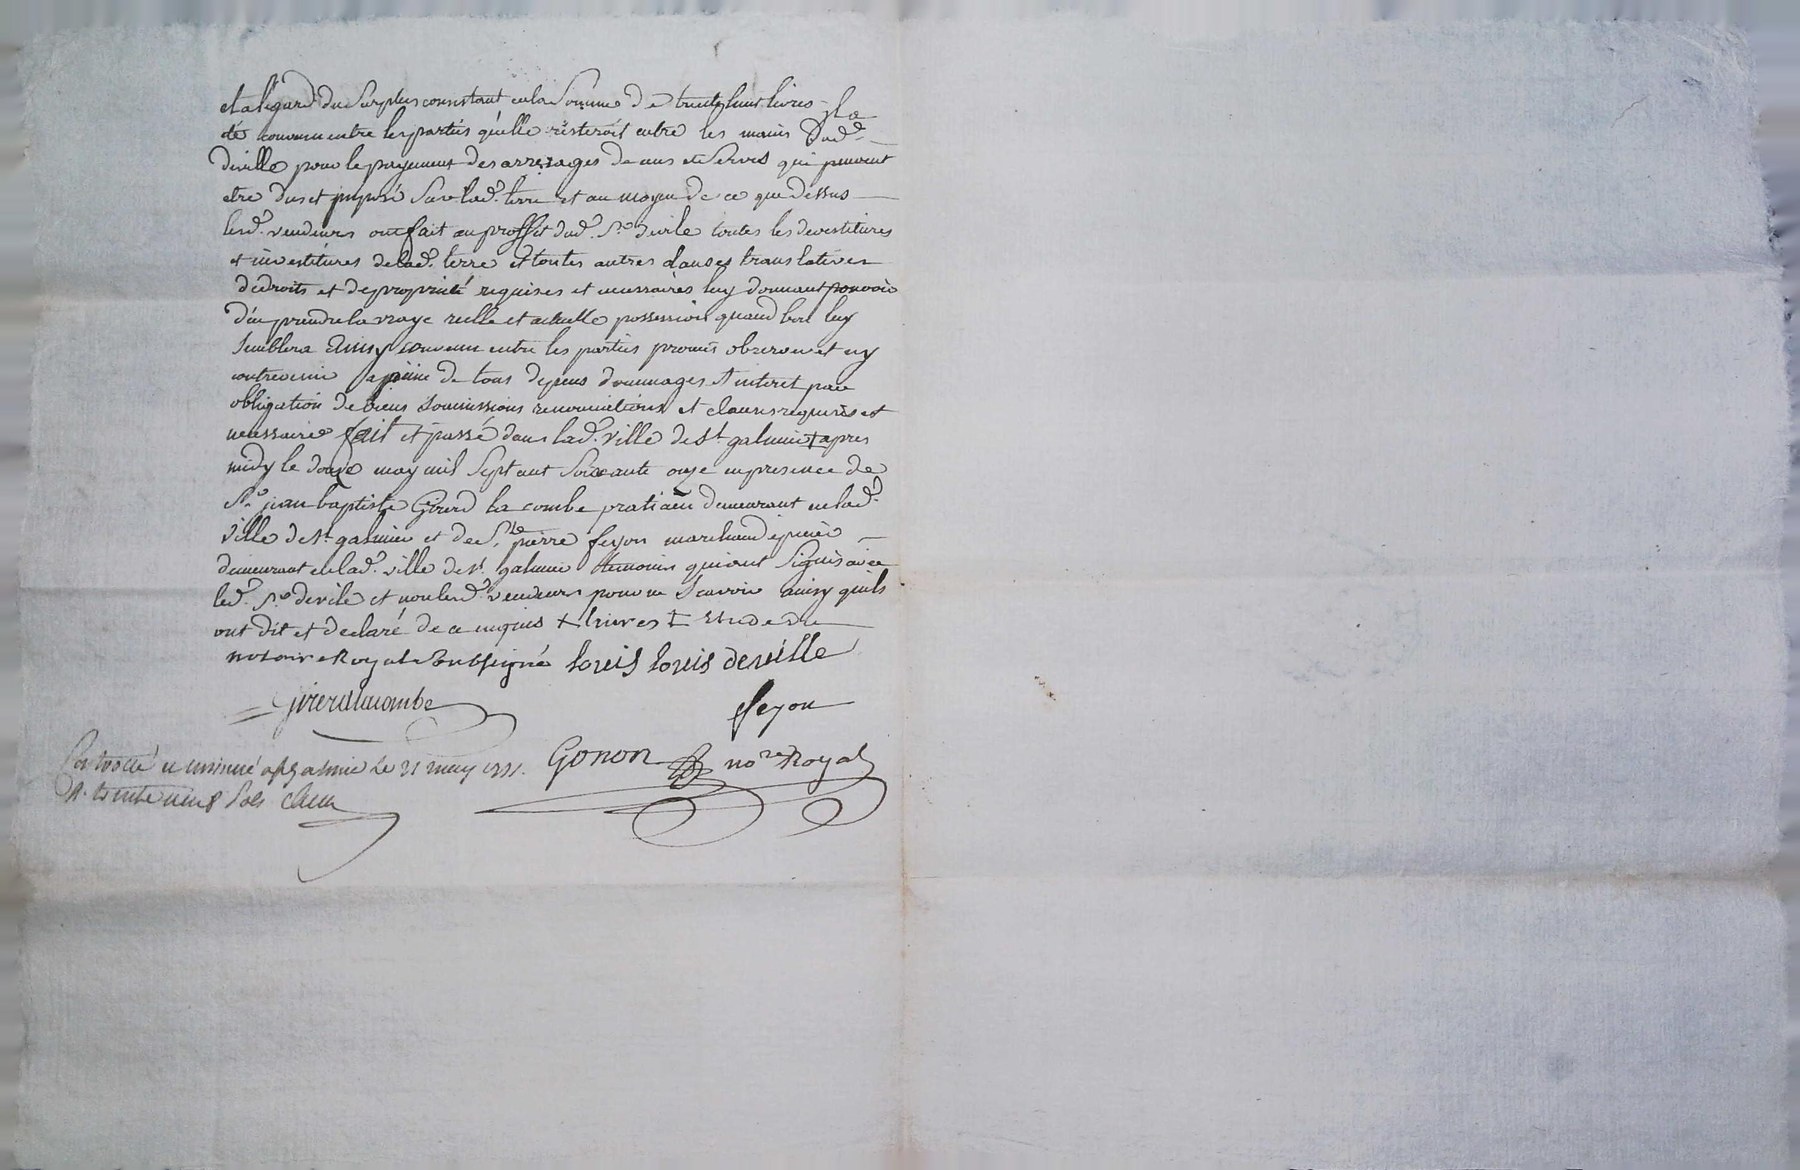 et a legard du Surplus consistant en la Somme de trente huit livres il a
été convenu entre les parties quelle resteroit entre les mains dud.
deville pour le payement des arrerages de cens et Servis qui peuvent
etre dus et imposé Sur lad. terre et au moyen de ce que dessus
lesd. vendeurs ont fait au proffit dud. Sr. devile toutes les devestitures
et investitures de lad. terre et toutes autres clauses translatives
de droits et de propriété requises et necessaires luy donnant pouvoir
d'en prendre la vraye reelle et actuelle possession quand bon luy
Semblera Ainsy convenu entre les parties promis observer et ny
contrevenir a peine de tous depens dommages et interet par
obligation de biens Soumissions renonciations et clauses requises et
necessaires fait et passé dans lad. ville de St galmier ‡ apres
midy le douze may mil Sept cent Soixante onze en presence de
Sr. jean baptiste Girerd la combe praticien demeurant en lad.
ville de St galmier et de Sr. pierre feyon marchand epicier
demeurant en lad. ville de St. galmier temoins qui ont Signés avec
led. Sr. devile et non lesd. vendeurs pour ne Scavoir ainsy quils
ont dit et declaré de ce enquis + livres ‡ Etude du
notaire Royal Soussigné louis louis deville
Girerd lacombe
feyon
Gonon nore. Royal
Controllé et insinué a St galmier le 21 may 1771.
R. trente neuf Sols